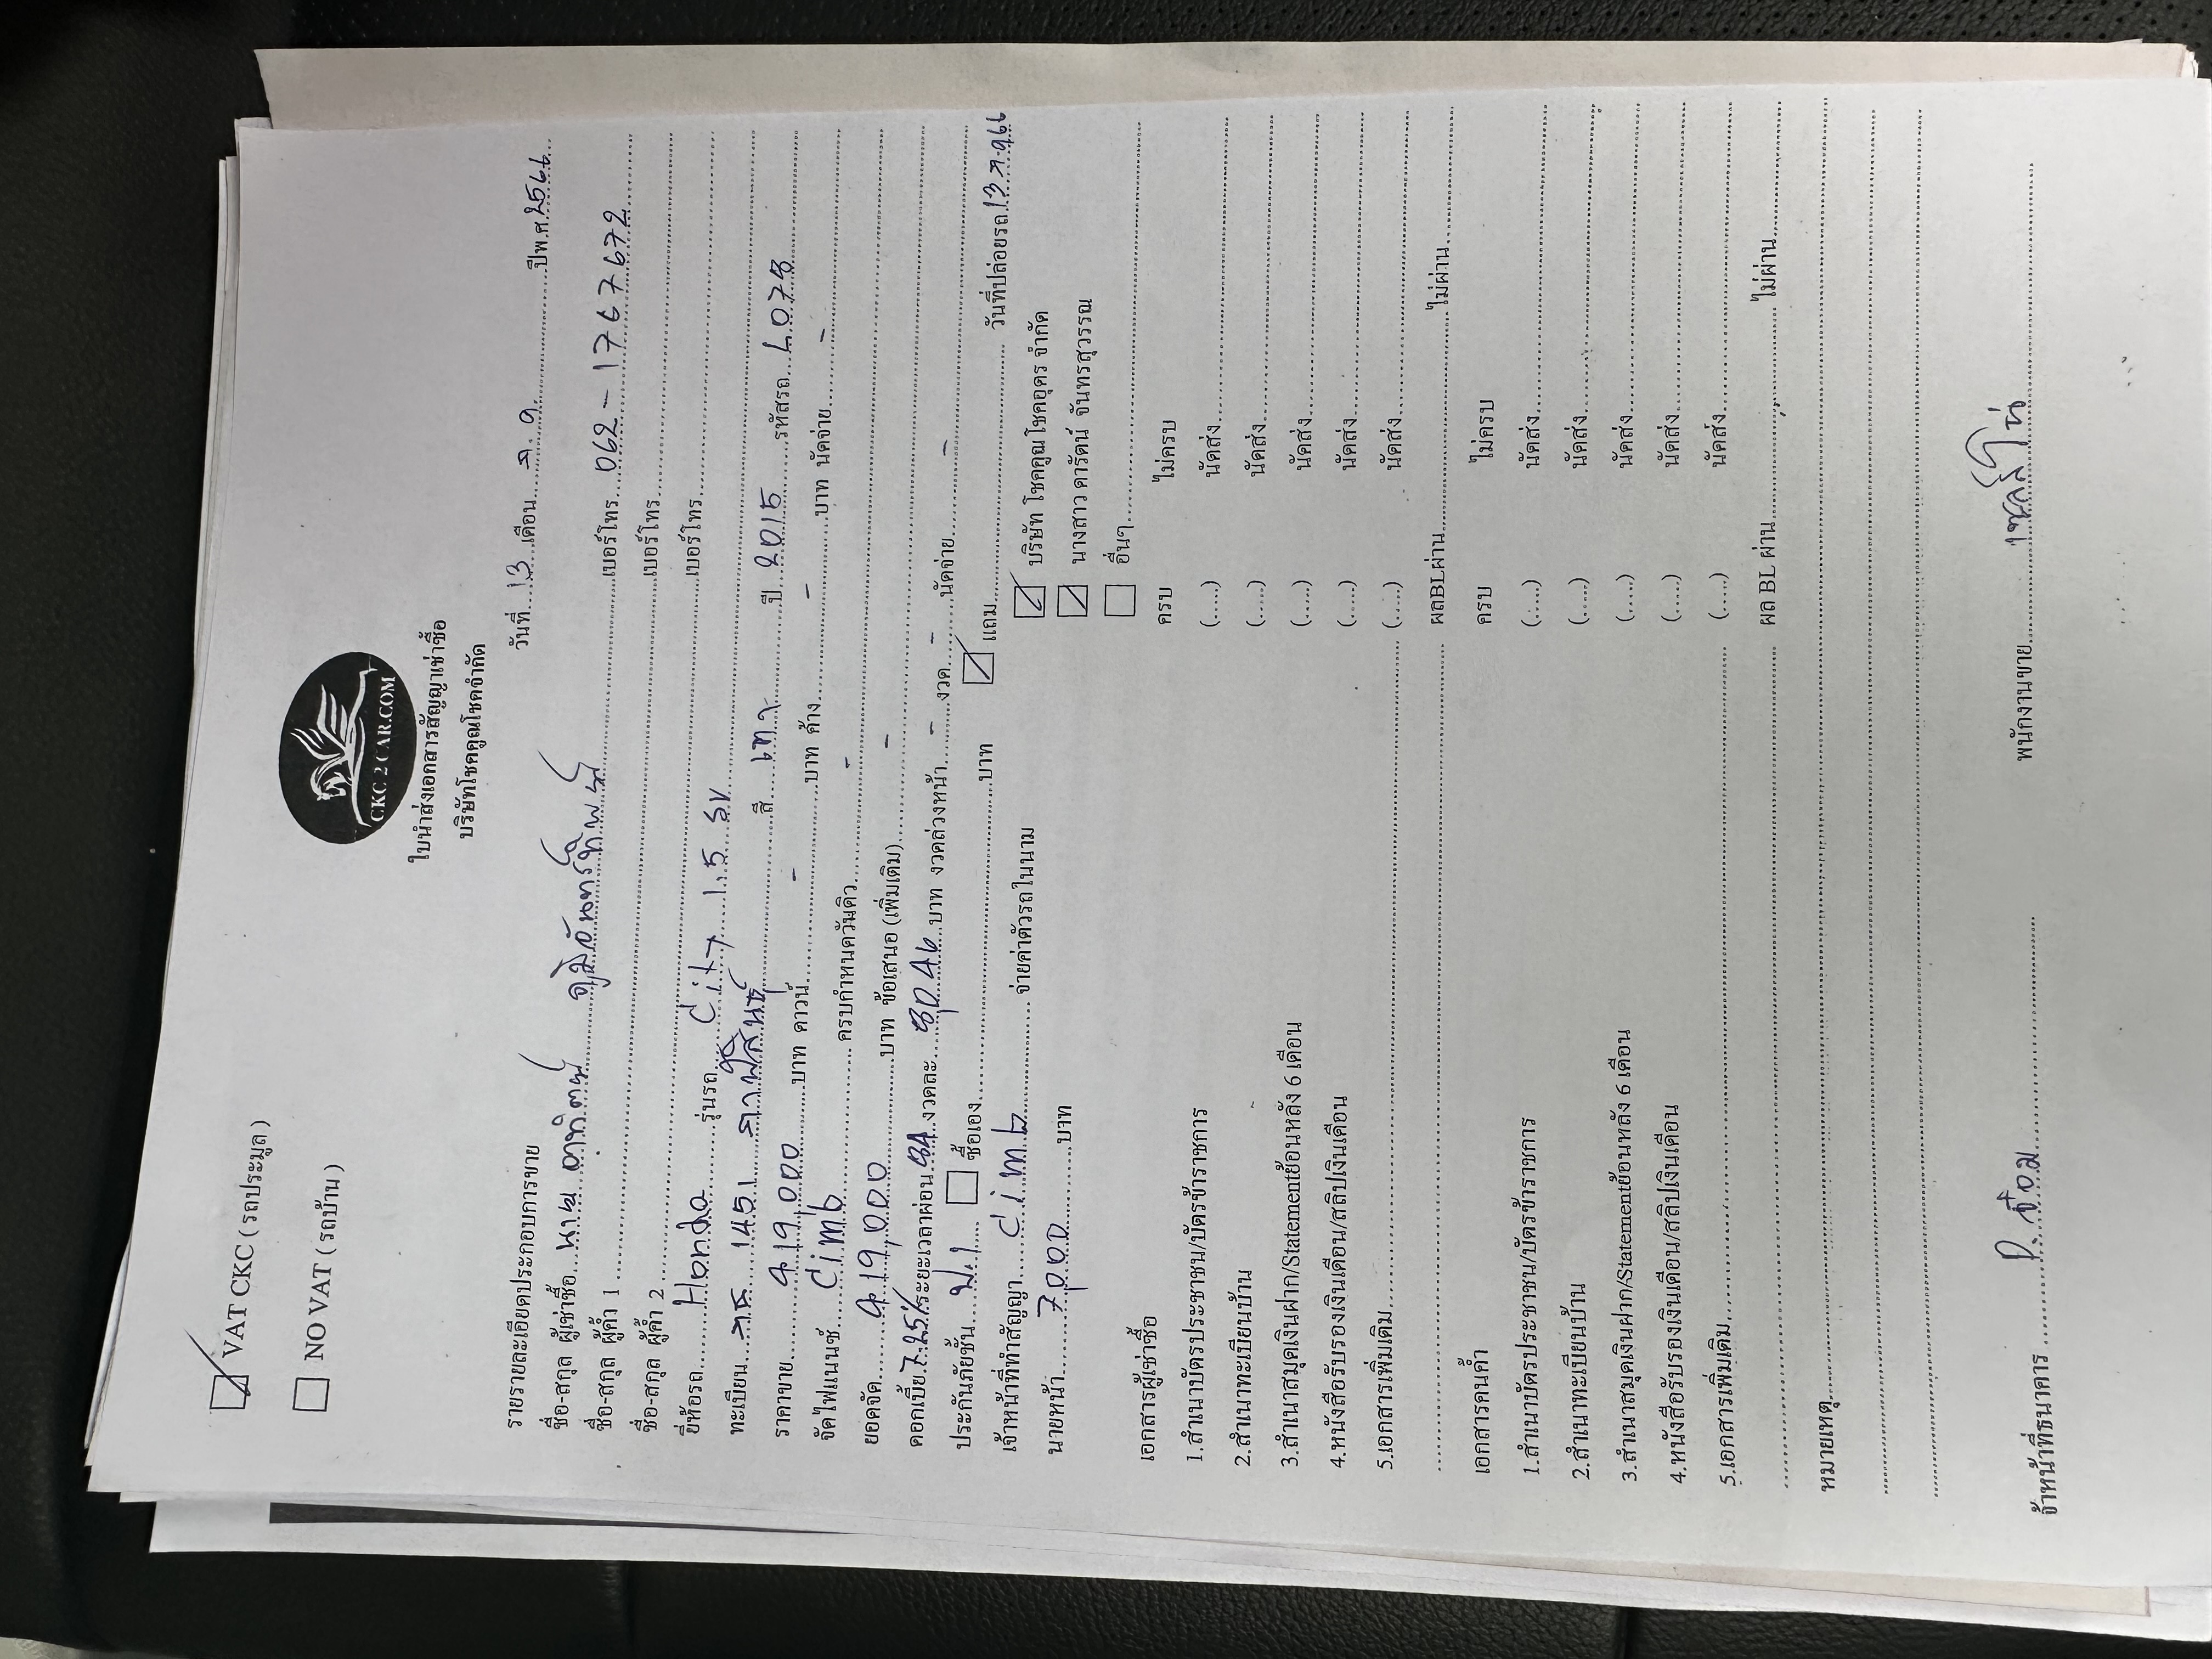 VAT CKC ( รถประมูล )
NO VAT ( รถบ้าน )
CKC 2 CAR.COM
ใบนำส่งเอกสารสัญญาเช่าซื้อ
บริษัทโชคคูณโชคจำกัด
วันที่....13....เดือน.......ปีพ.ศ.2566...
รายรายละเอียดประกอบการขาย
ชื่อ-สกุล ผู้เช่าซื้อ...นาย อาทิตย์.......เบอร์โทร...062-1767672
ชื่อ-สกุล ผู้ค้ำ 1.......เบอร์โทร.......
ชื่อ-สกุล ผู้ค้ำ 2.......เบอร์โทร.......
ยี่ห้อรถ.....Honda.....รุ่นรถ...City 1.5 SV.......
ทะเบียน... 1451 กาฬสินธุ์.....สี...เทา.....ปี...2015.....รหัสรถ...L078.....
ราคาขาย.....419,000.....บาท ดาวน์.....-.....บาท ค้าง.....-.....บาท นัดจ่าย.....-.....
จัดไฟแนนซ์.....Cimb.....ครบกำหนดวันคิว.....-.....
ยอดจัด.....419,000.....บาท ข้อเสนอ (เพิ่มเติม).....-.....
ดอกเบี้ย.7.25%ระยะเวลาผ่อน.84.งวดละ...8,046...บาท งวดล่วงหน้า.....-.....งวด.....-.....นัดจ่าย.....-.....
ประกันภัยชั้น...ป.1..... ซื้อเอง.......บาท แถม....... วันที่ปล่อยรถ.13 ต.ค.66
เจ้าหน้าที่ทำสัญญา.....Cimb..... จ่ายค่าตัวรถในนาม บริษัท โชคคูณโชคอุดร จำกัด
นายหน้า.....7,000.....บาท นางสาว ดารัตน์ จันทรสุวรรณ
อื่นๆ.......
เอกสารผู้เช่าซื้อ ครบ ไม่ครบ
1.สำเนาบัตรประชาชน/บัตรข้าราชการ (....) นัดส่ง.......
2.สำเนาทะเบียนบ้าน (....) นัดส่ง.......
3.สำเนาสมุดเงินฝาก/Statementย้อนหลัง 6 เดือน (....) นัดส่ง.......
4.หนังสือรับรองเงินเดือน/สลิปเงินเดือน (....) นัดส่ง.......
5.เอกสารเพิ่มเติม....... (....) นัดส่ง.......
....... ผลBLผ่าน.......ไม่ผ่าน.......
เอกสารคนค้ำ ครบ ไม่ครบ
1.สำเนาบัตรประชาชน/บัตรข้าราชการ (....) นัดส่ง.......
2.สำเนาทะเบียนบ้าน (....) นัดส่ง.......
3.สำเนาสมุดเงินฝาก/Statementย้อนหลัง 6 เดือน (....) นัดส่ง.......
4.หนังสือรับรองเงินเดือน/สลิปเงินเดือน (....) นัดส่ง.......
5.เอกสารเพิ่มเติม....... (....) นัดส่ง.......
....... ผล BL ผ่าน.......ไม่ผ่าน.......
หมายเหตุ.......
จ้าหน้าที่ธนาคาร....... พนักงานขาย.......